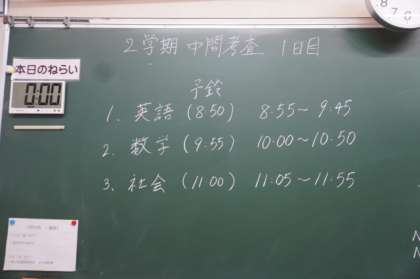 2学期 中間考査 1日目
本日のねらい
0:00
予鈴
1. 英語 (8:50) 8:55～9:45
2. 数学 (9:55) 10:00～10:50
3. 社会 (11:00) 11:05～11:55
8
7
6